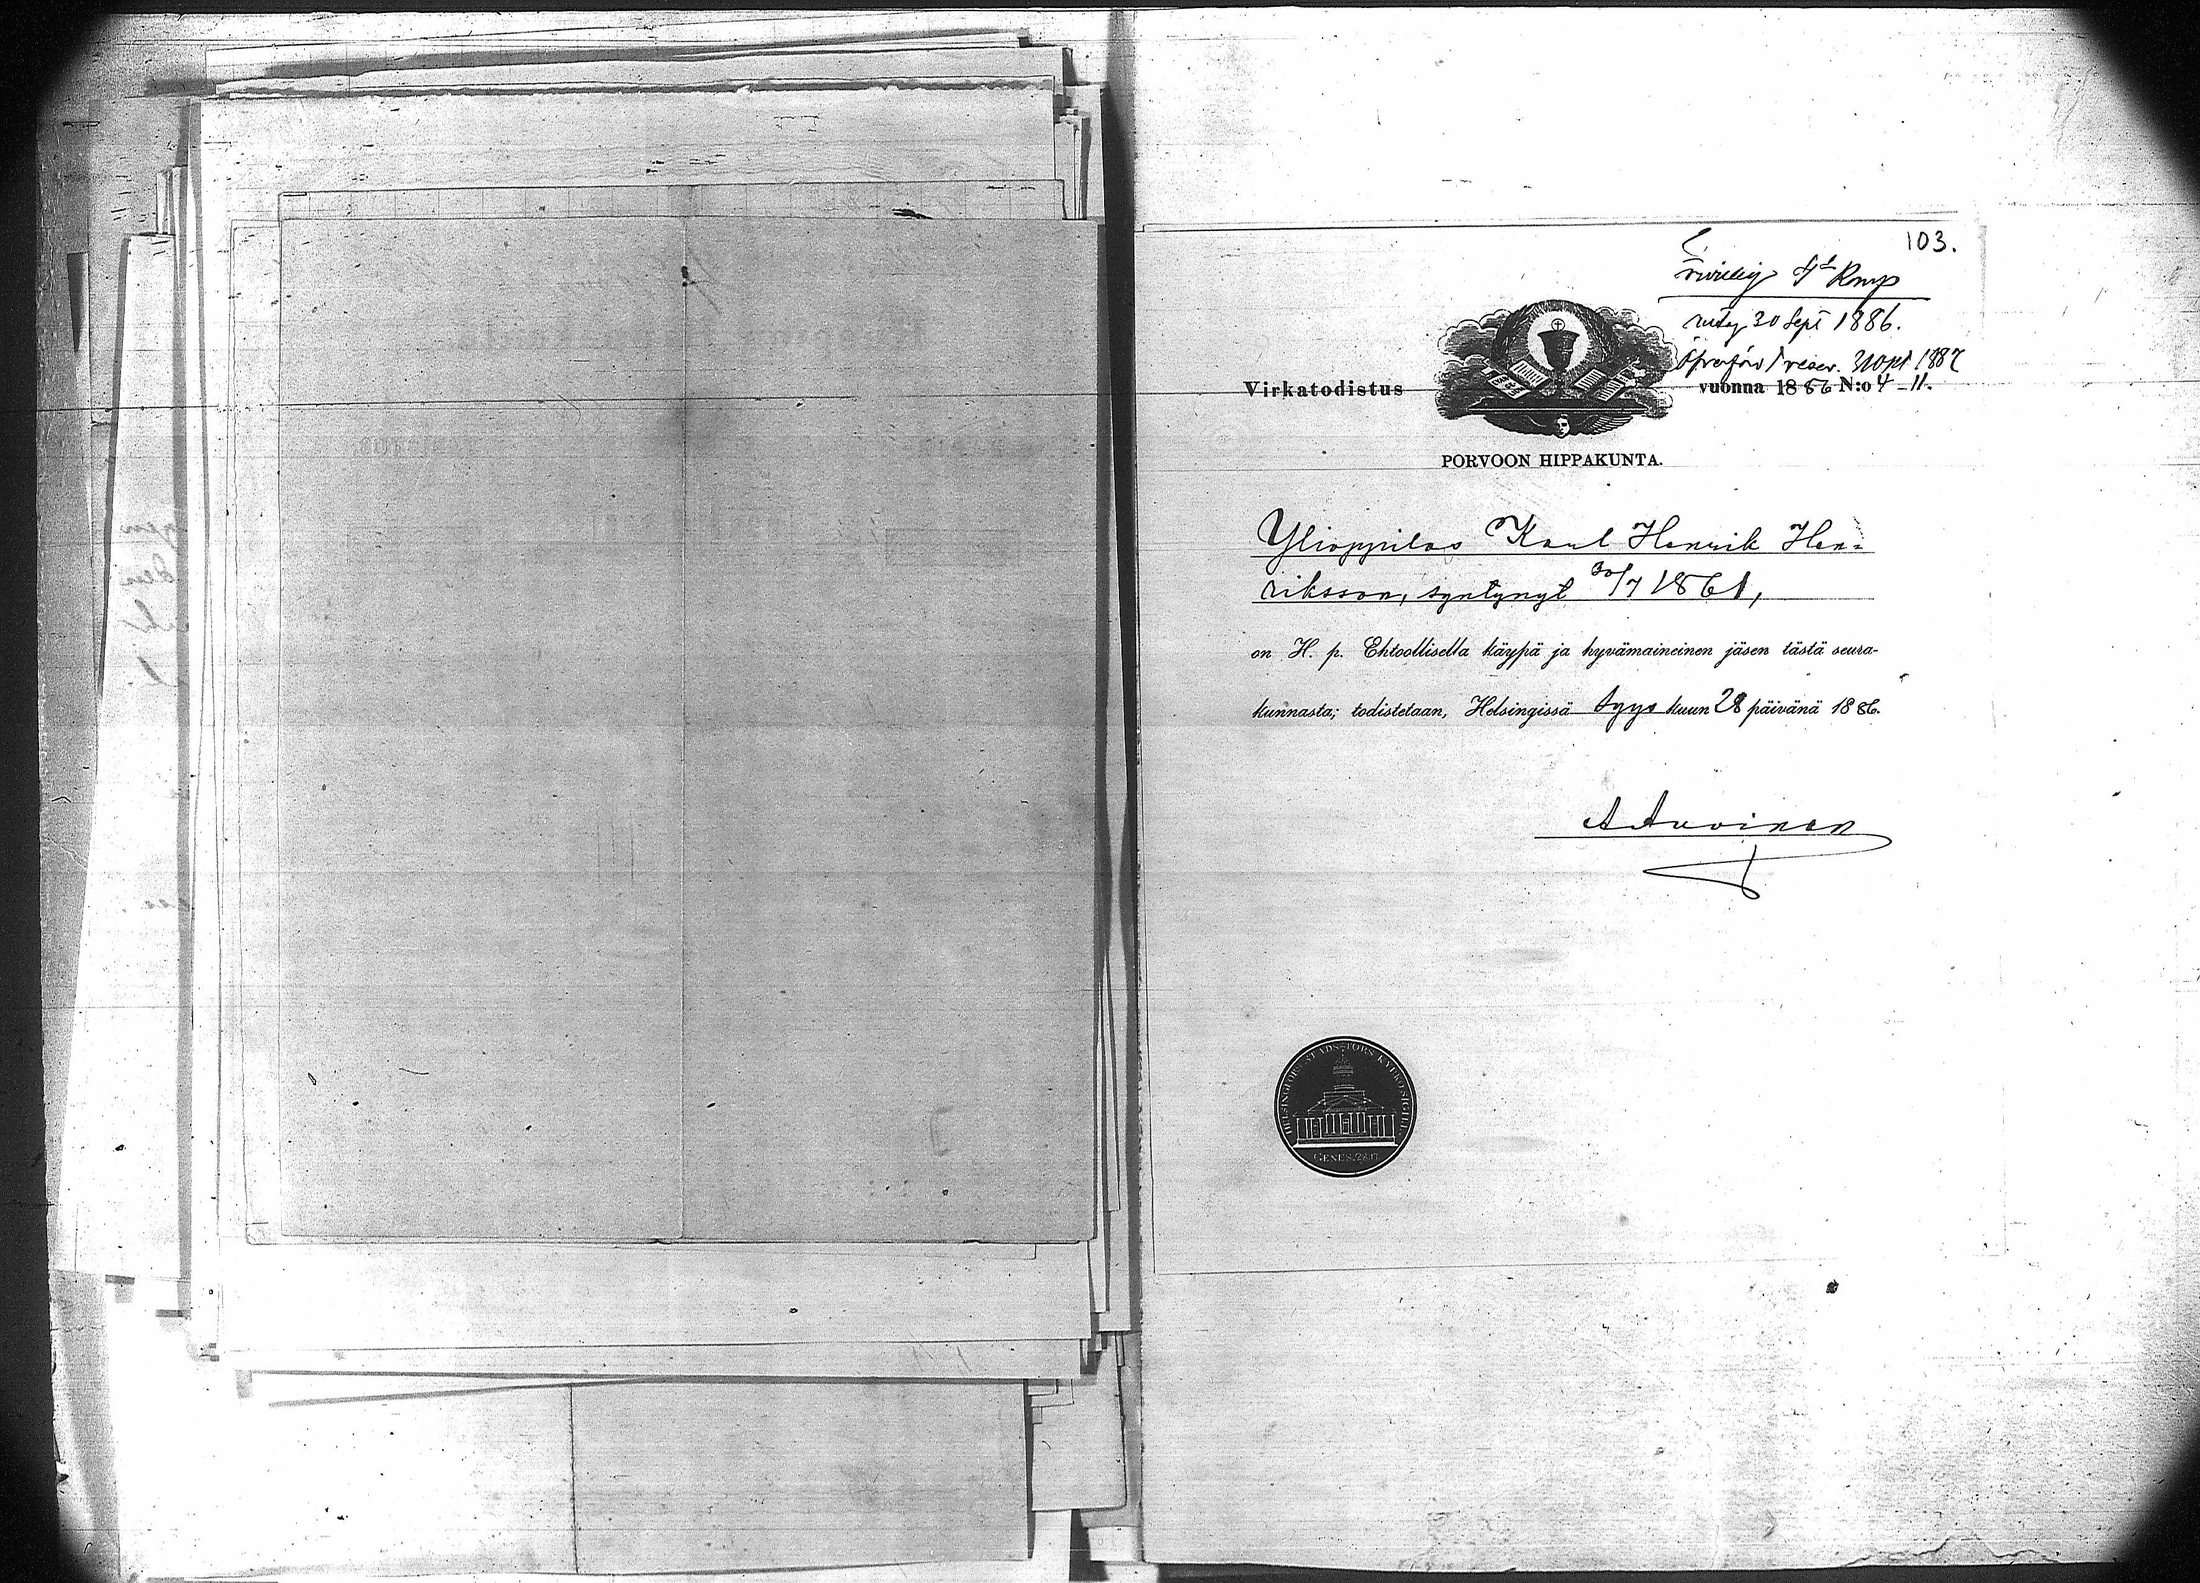 103.
frivillig 4de Komp
antag 30 Sept 1886.
Öfverförd i reserv. 1887
Virkatodistus vuonna 1886 N:o 4-11.
PORVOON HIPPAKUNTA.
Ylioppilas Karl Henrik Hen=
riksson, syntynyt 30/7 1861,
on H. p. Ehtoollisella käypä ja hyvämaineinen jäsen tästä seura-
kunnasta; todistetaan, Helsingissä Syys kuun 28 päivänä 1886.
A Auvinen
HELSINGFORS STADS KYRKO SIGILL
GENES. 28.17